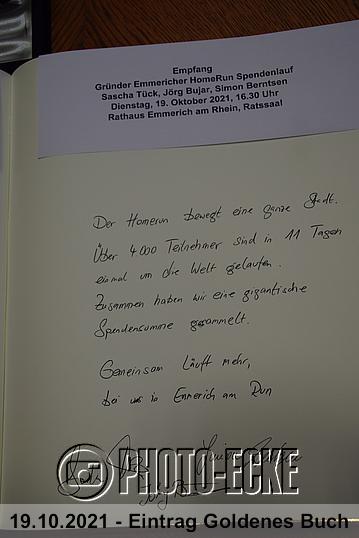 Empfang
Gründer Emmericher HomeRun Spendenlauf
Sascha Tück, Jörg Bujar, Simon Berntsen
Dienstag, 19. Oktober 2021, 16.30 Uhr
Rathaus Emmerich am Rhein, Ratssaal
Der Homerun bewegt eine ganze Stadt.
Über 4000 Teilnehmer sind in 11 Tagen
einmal um die Welt gelaufen.
Zusammen haben wir eine gigantische
Spendensumme gesammelt.
Gemeinsam läuft mehr,
bei uns in Emmerich am Run
PHOTO-ECKE
19.10.2021 - Eintrag Goldenes Buch